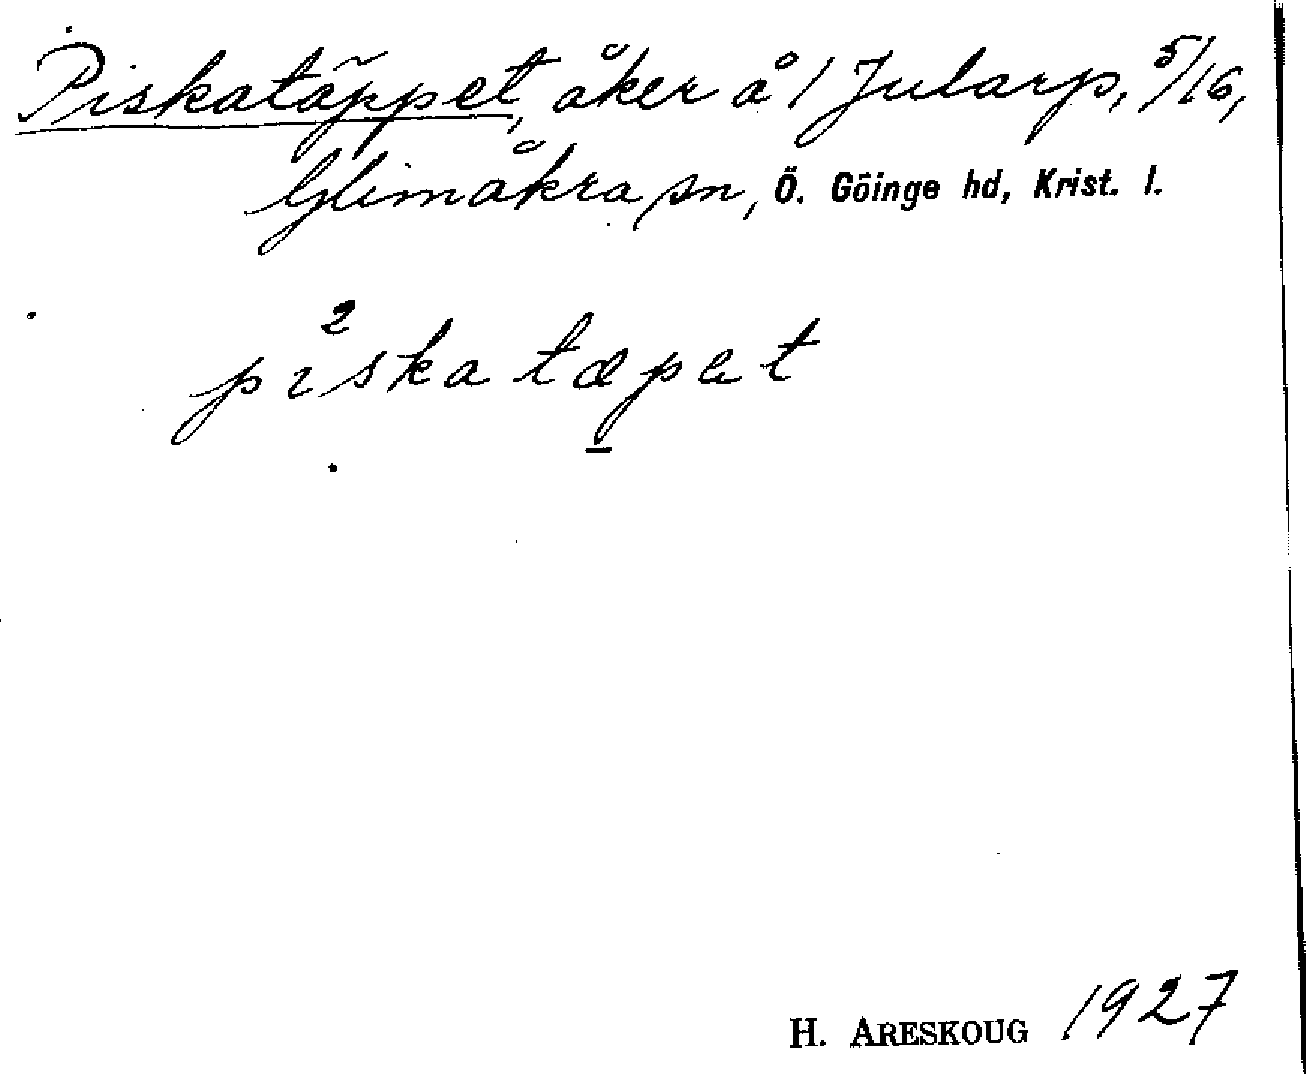 Piskatäppet, åker å 1 Jularp, 5/16,
Glimåkra sn, Ö. Göinge hd, Krist. l.
2
pıska tæpet
H. ARESKOUG 1927